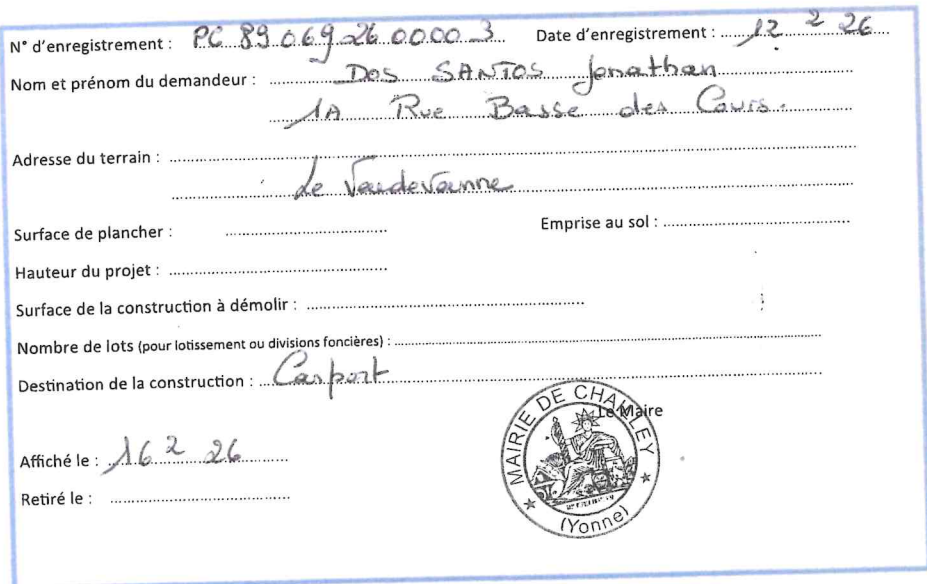 N° d'enregistrement : PC 89 069 26 0000 3 Date d'enregistrement : 12 2 26
Nom et prénom du demandeur : DOS SANTOS Jonathan
1A Rue Basse des Cours.
Adresse du terrain :
Le Vaudevanne
Surface de plancher : Emprise au sol :
Hauteur du projet :
Surface de la construction à démolir :
Nombre de lots (pour lotissement ou divisions foncières) :
Destination de la construction : Carport
Le Maire
MAIRIE DE CHAILLEY
(Yonne)
Affiché le : 16 2 26
Retiré le :